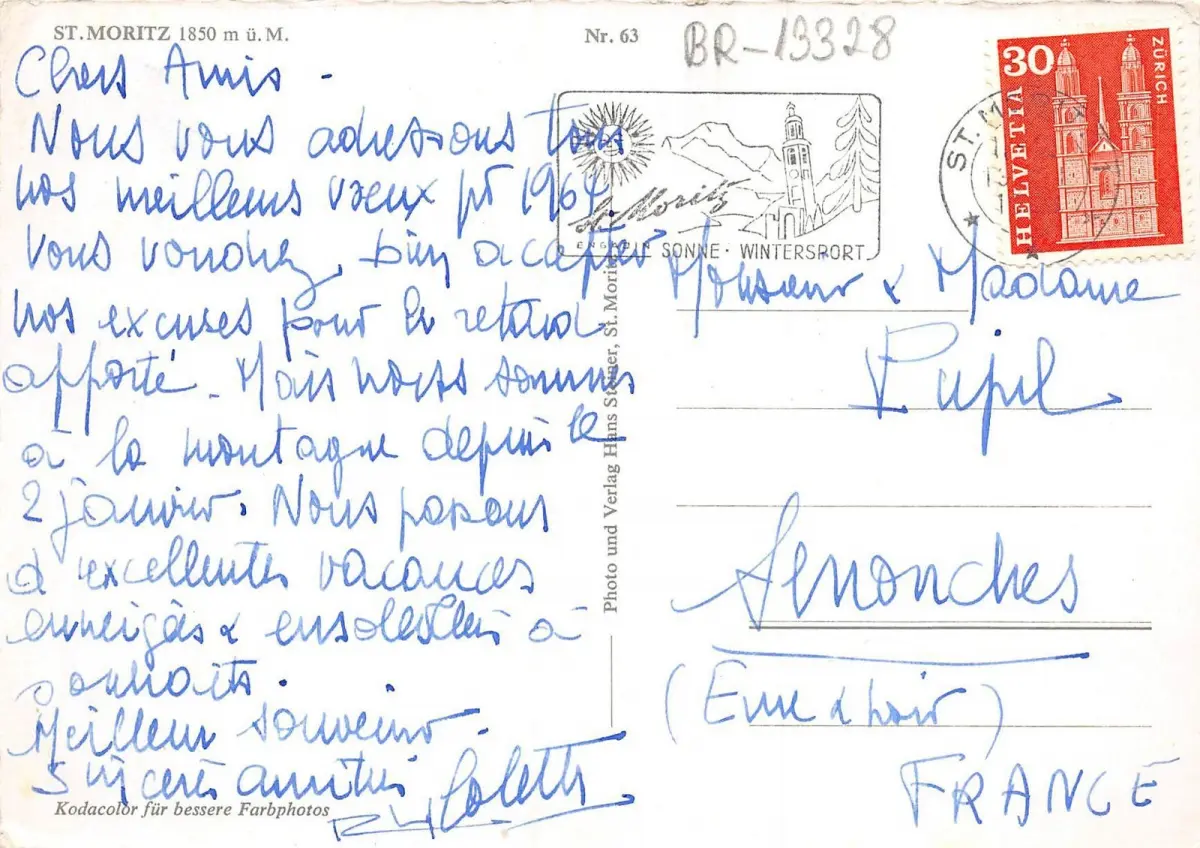 ST. MORITZ 1850 m ü. M.
Nr. 63
BR-13328
Chers Amis -
Nous vous adressons tous
nos meilleurs vœux pr 1964.
Vous voudrez, bien accepter
nos excuses pour le retard
apporté. Mais nous sommes
à la montagne depuis le
2 janvier. Nous passons
d'excellentes vacances
enneigées & ensoleillées à
souhaits.
Meilleur souvenir.
Sincères amitiés Colette
Kodacolor für bessere Farbphotos
Photo und Verlag Hans Steiner, St. Moritz
St. Moritz
ENGADIN SONNE · WINTERSPORT
ST. M
30
HELVETIA
ZÜRICH
Monsieur & Madame
Pupil
Senonches
(Eure & Loir)
FRANCE